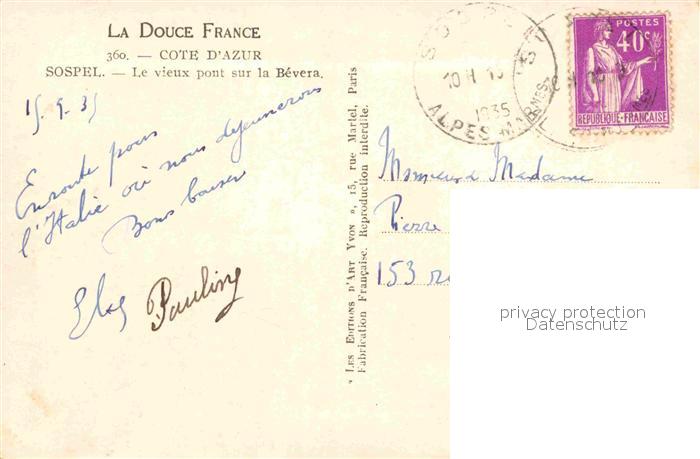 LA DOUCE FRANCE
360. — COTE D'AZUR
SOSPEL. — Le vieux pont sur la Bévera.
15. 9. 35
En route pour
l'Italie où nous déjeunerons
Bons baiser
Pauling
« LES EDITIONS D'ART YVON », 15, rue Martel, Paris
Fabrication Française. Reproduction interdite.
10 H 15
1935
ALPES-MARMES
POSTES
40c
REPUBLIQUE-FRANÇAISE
Monsieur Madame
Pierre
153
privacy protection
Datenschutz